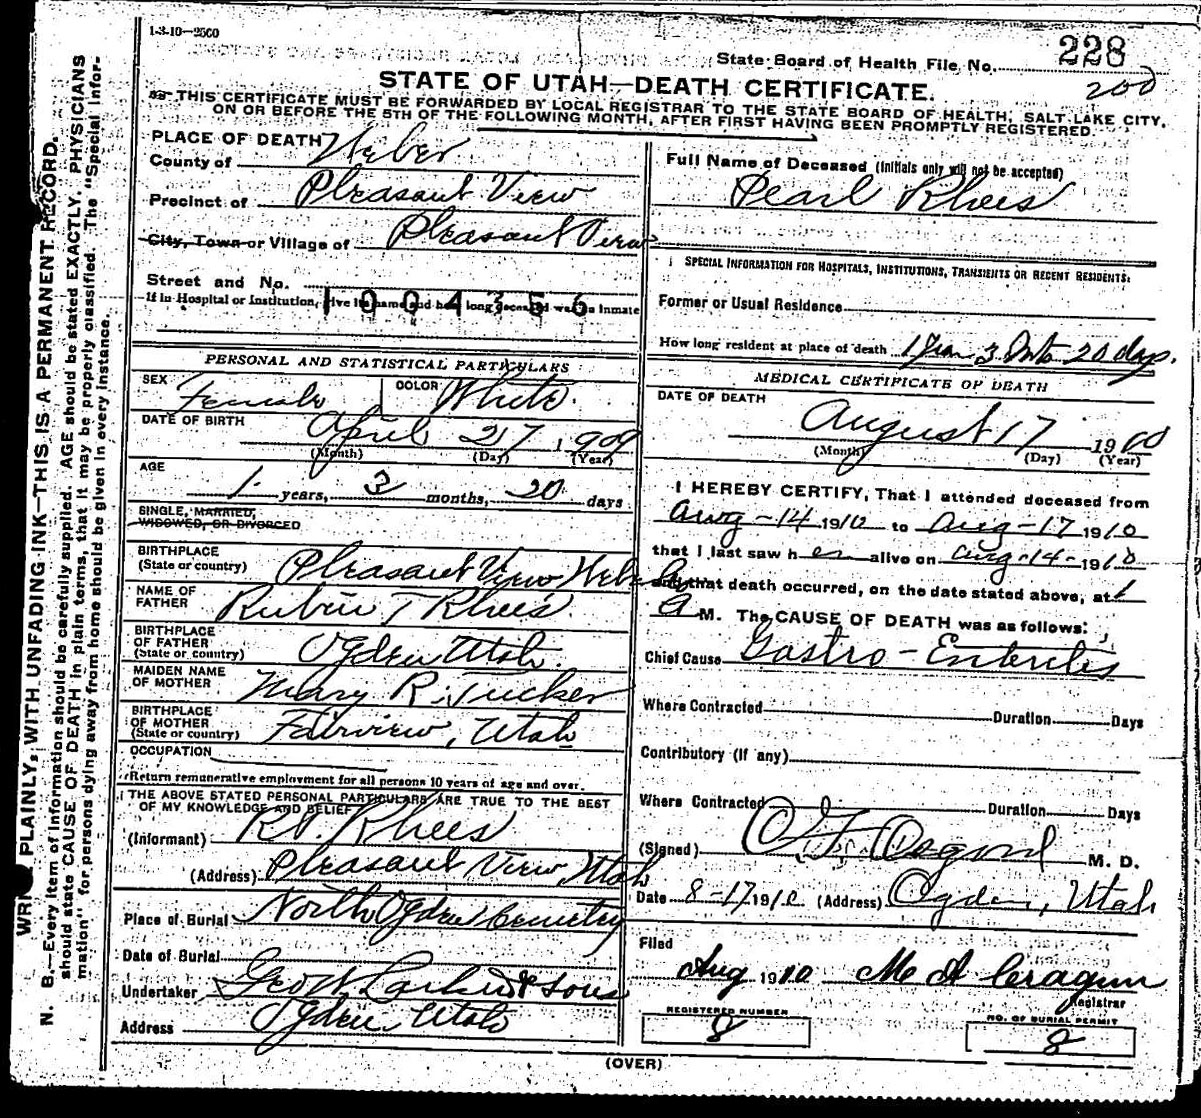 1-3-10—2500
State Board of Health File No. 228
200
STATE OF UTAH—DEATH CERTIFICATE.
THIS CERTIFICATE MUST BE FORWARDED BY LOCAL REGISTRAR TO THE STATE BOARD OF HEALTH, SALT LAKE CITY,
ON OR BEFORE THE 5TH OF THE FOLLOWING MONTH, AFTER FIRST HAVING BEEN PROMPTLY REGISTERED.
WRITE PLAINLY, WITH UNFADING INK—THIS IS A PERMANENT RECORD.
N. B.—Every item of information should be carefully supplied. AGE should be stated EXACTLY. PHYSICIANS
should state CAUSE OF DEATH in plain terms, that it may be properly classified. The "Special Infor-
mation" for persons dying away from home should be given in every instance.
PLACE OF DEATH
County of Weber
Precinct of Pleasant View
City, Town or Village of Pleasant View
Street and No.
If in Hospital or Institution, give its name and how long deceased was an inmate
1004356
PERSONAL AND STATISTICAL PARTICULARS
SEX Female COLOR White.
DATE OF BIRTH April 27 1909
(Month) (Day) (Year)
AGE
1 years, 3 months, 20 days
SINGLE, MARRIED,
WIDOWED, OR DIVORCED
BIRTHPLACE
(State or country) Pleasant View, Weber
NAME OF
FATHER Rubin T Rhees
BIRTHPLACE
OF FATHER
(State or country) Ogden Utah.
MAIDEN NAME
OF MOTHER Mary R. Tucker
BIRTHPLACE
OF MOTHER
(State or country) Fairview, Utah
OCCUPATION
(Return remunerative employment for all persons 10 years of age and over.
THE ABOVE STATED PERSONAL PARTICULARS ARE TRUE TO THE BEST
OF MY KNOWLEDGE AND BELIEF
(Informant) R.T. Rhees
(Address) Pleasant View, Utah
Place of Burial North Ogden Cemetry
Date of Burial
Undertaker Geo W Larkin & Sons
Address Ogden, Utah
Full Name of Deceased (Initials only will not be accepted)
Pearl Rhees
SPECIAL INFORMATION FOR HOSPITALS, INSTITUTIONS, TRANSIENTS OR RECENT RESIDENTS:
Former or Usual Residence
How long resident at place of death 1 year 3 Mts 20 days.
MEDICAL CERTIFICATE OF DEATH
DATE OF DEATH
August 17 1910
(Month) (Day) (Year)
I HEREBY CERTIFY, That I attended deceased from
Aug-14 1910 to Aug-17 1910
that I last saw her alive on Aug-14-1910
and that death occurred, on the date stated above, at 1
A M. The CAUSE OF DEATH was as follows:
Chief Cause Gastro-Enteritis
Where Contracted Duration Days
Contributory (if any)
Where Contracted Duration Days
(Signed) Osgood M. D.
Date 8-17 1910 (Address) Ogden, Utah
Filed
Aug 1910 M A Cragun
Registrar
REGISTERED NUMBER
8
NO. OF BURIAL PERMIT
8
(OVER)